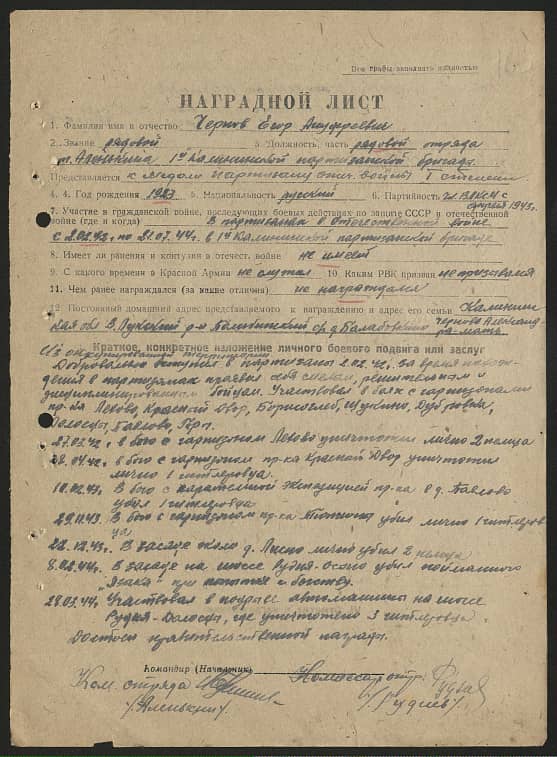 Все графы заполнять полностью
НАГРАДНОЙ ЛИСТ
1. Фамилия имя и отчество Чернов Егор
2. Звание рядовой 3. Должность, часть рядовой отряда
т. Аленькина 1й Калининской партизанской бригады
Представляется к медали партизану отеч. войны I степени
4. 4. Год рождения 1923 5. Национальность русский 6. Партийность чл. ВЛКСМ с
1943г.
7. Участие в гражданской войне, последующих боевых действиях по защите СССР и отечественной
войне (где и когда) В партизанах в Отечественной войне
с 2.02.42г. по 21.07.44г. в 1й Калининской партизанской бригаде
8. Имеет ли ранения и контузии в отечест. войне не имеет
9. С какого времени в Красной Армии не служил 10. Каким РВК призван не призывался
11. Чем ранее награждался (за какие отличия) не награждался
12. Постоянный домашний адрес представляемого к награждению и адрес его семьи Калинин
ская обл В. Лукский р-н с/с д. Чернова Александ
ра - мать
Краткое, конкретное изложение личного боевого подвига или заслуг
Добровольно вступил в партизаны 2.02.42г. За время нахож-
дения в партизанах проявил себя смелым, решительным и
дисциплинированным бойцом. Участвовал в боях с гарнизонами
пр-ка Лехово, Красный Двор, Борисоглеб, Щукино, Дубровка,
Долосцы, Павлово,
27.02.42г. в бою с гарнизоном Лехово уничтожил лично 2 немца
28.04.42г. в бою с гарнизоном пр-ка Красный Двор уничтожил
лично 1 гитлеровца.
10.02.43г. В бою с карательной экспедицией пр-ка в д. Павлово
убил 1 гитлеровца.
29.11.43г. В бою с гарнизоном пр-ка убил лично 1 гитлеров
ца
22.12.43г. В засаде около д. лично убил 2 немца
8.02.44г. В засаде на шоссе Рудня-Осыно убил пойманного
"языка" при попытке к бегству.
28.03.44г. Участвовал в подрыве автомашины на шоссе
Рудня-Долосцы, где уничтожено 3 гитлеровца.
Достоин правительственной награды.
Командир (Начальник) Комиссар отр.
Ком. отряда
/Аленькин/ /Рудиев/